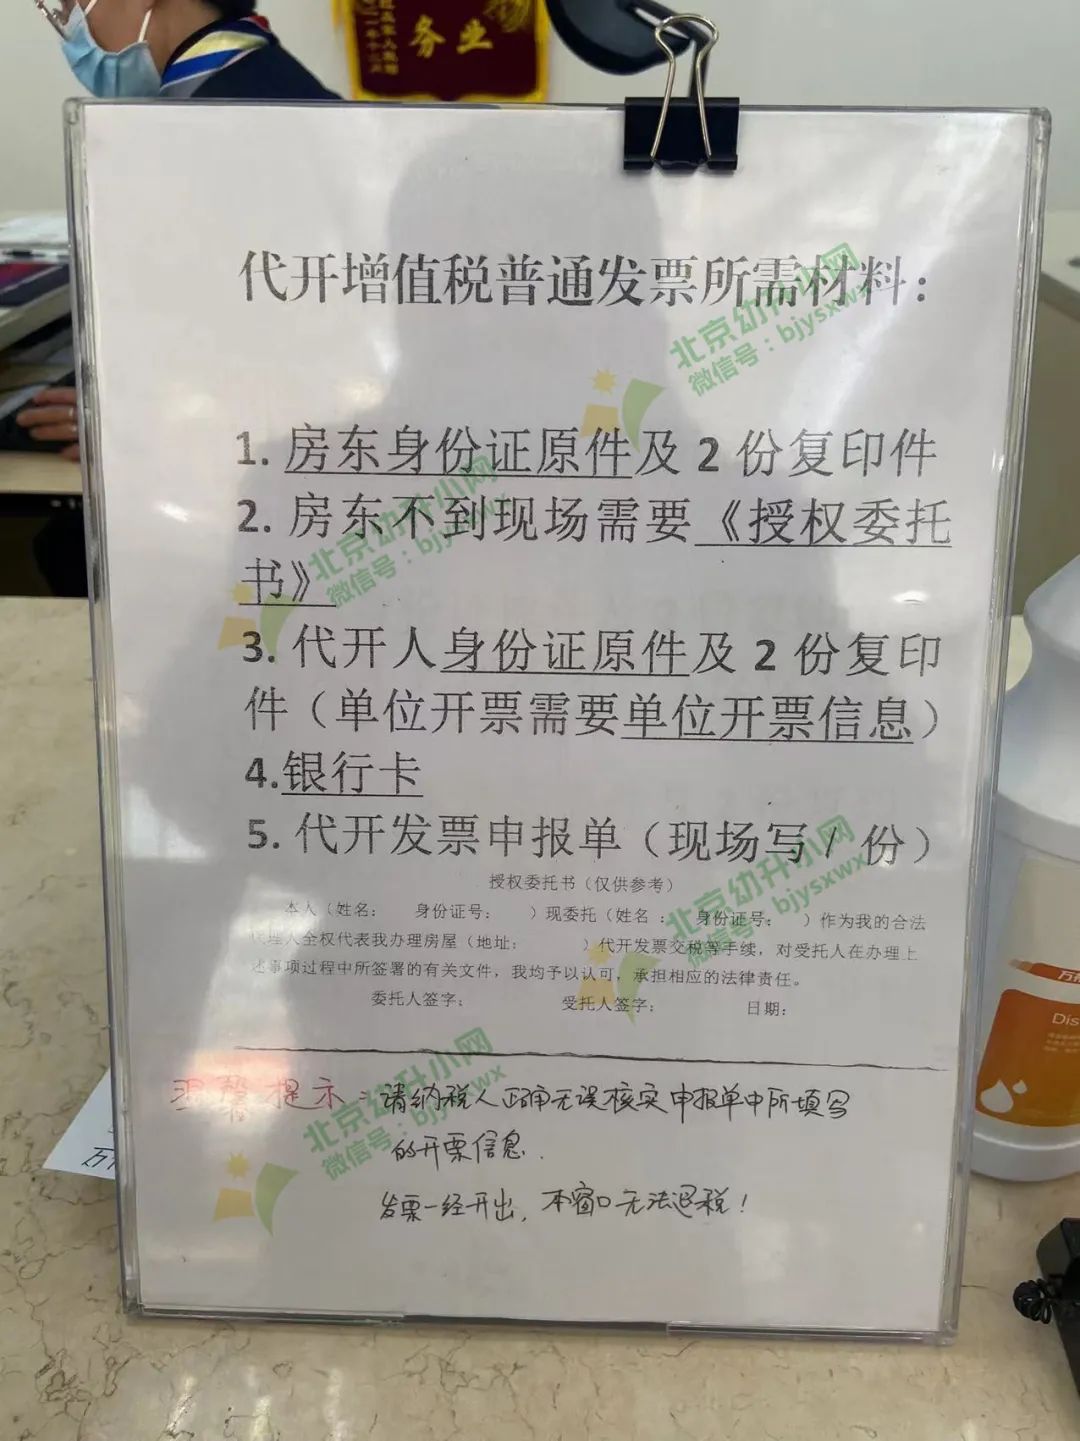 务业
代开增值税普通发票所需材料：
1. 房东身份证原件及 2 份复印件
2. 房东不到现场需要《授权委托
书》
3. 代开人身份证原件及 2 份复印
件（单位开票需要单位开票信息）
4.银行卡
5. 代开发票申报单（现场写 / 份）
授权委托书（仅供参考）
本人（姓名： 身份证号： ）现委托（姓名： 身份证号： ）作为我的合法
代理人全权代表我办理房屋（地址： ）代开发票交税等手续，对受托人在办理上
述事项过程中所签署的有关文件，我均予以认可，承担相应的法律责任。
委托人签字： 受托人签字： 日期：
温馨提示：请纳税人正确无误核实申报单中所填写
的开票信息.
发票一经开出，本窗口无法退税！
北京幼升小网
微信号：bjysxwx
北京幼升小网
微信号：bjysxwx
北京幼升小网
微信号：bjysxwx
北京幼升小网
微信号：bjysxwx
Dis